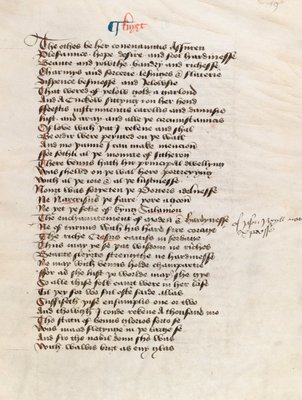 ¶ Thyrst
The othes be her conenauntis assuren
Plesaunce hope desire and fool hardinesse
Beaute and youthe baudry and richesse
Charmys and sorcerie lesinges &amp; flaterie
Dispence besinesse and Jelowsie
That wered of yelow gold a garlond
And a Cokkow sittyng on her hond
ffestis instrumentis carolis and
lust and aray and alle þe circumstaunces
Of love with þat I rekene and shall
Be ordre were peynted on þe wall
And mo þanne I can make mencion
ffor sothli al þe mounte of
There venus hath hir principal dwelling
Was shewed on þe wal here portreying
With al þe and al þe lustinesse
Nouȝt was forȝeten þe Porter idelnesse
Ne Narcisus þe faire ȝore agoon
Ne ȝet þe folie of kyng Salamon
The enchauntement of medea &amp; hardynesse
Ne of turnus with his hard fiers corage
The riche Cresus caitif in servage
Thus may ȝe se þat wisdom ne richesse
Beaute sleyte strengthe ne hardinesse
Ne may with venus holde champartie
ffor as she lust þe worlde may she gye
lo alle thise folk cauȝt were in her
Til þey for wo ful ofte saide allas
Suffiseth þise ensamples one or two
And thouȝh I coude rekene a thousand mo
The statu of venus glorious forto se
Was naked fletyng in þe large se
And fro the nabil doun al
With wawis briȝt as eny glas